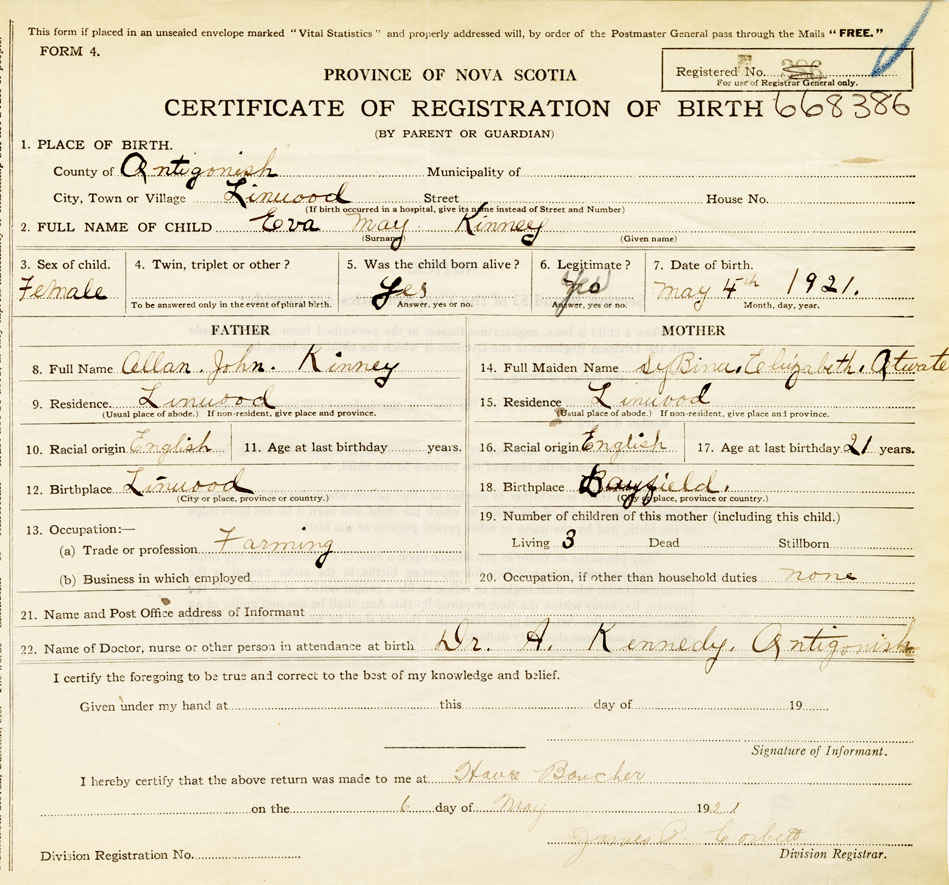 This form if placed in an unsealed envelope marked "Vital Statistics" and properly addressed will, by order of the Postmaster General pass through the Mails "FREE."
FORM 4.
Registered No.
For use of Registrar General only.
PROVINCE OF NOVA SCOTIA
CERTIFICATE OF REGISTRATION OF BIRTH 668386
(BY PARENT OR GUARDIAN)
1. PLACE OF BIRTH.
County of Antigonish Municipality of
City, Town or Village Linwood Street House No.
(If birth occurred in a hospital, give its name instead of Street and Number)
2. FULL NAME OF CHILD Eva May Kinney
(Surname) (Given name)
3. Sex of child. 4. Twin, triplet or other? 5. Was the child born alive? 6. Legitimate? 7. Date of birth.
Female Yes Yes May 4th 1921.
To be answered only in the event of plural birth. Answer, yes or no. Answer, yes or no. Month, day, year.
FATHER MOTHER
8. Full Name Allan. John. Kinney 14. Full Maiden Name SyBina. Elizabeth. Atwate
9. Residence. Linwood 15. Residence Linwood
(Usual place of abode.) If non-resident, give place and province. (Usual place of abode.) If non-resident, give place and province.
10. Racial origin English 11. Age at last birthday years. 16. Racial origin English 17. Age at last birthday 21 years.
12. Birthplace Linwood 18. Birthplace Bayfield.
(City or place, province or country.) (City or place, province or country.)
19. Number of children of this mother (including this child.)
13. Occupation:—
(a) Trade or profession Farming Living 3 Dead Stillborn
(b) Business in which employed 20. Occupation, if other than household duties none
21. Name and Post Office address of Informant
22. Name of Doctor, nurse or other person in attendance at birth Dr. A. Kennedy. Antigonish
I certify the foregoing to be true and correct to the best of my knowledge and belief.
Given under my hand at this day of 19
Signature of Informant.
I hereby certify that the above return was made to me at Havre Boucher
on the 6 day of May 1921
James P. Corbett
Division Registration No. Division Registrar.